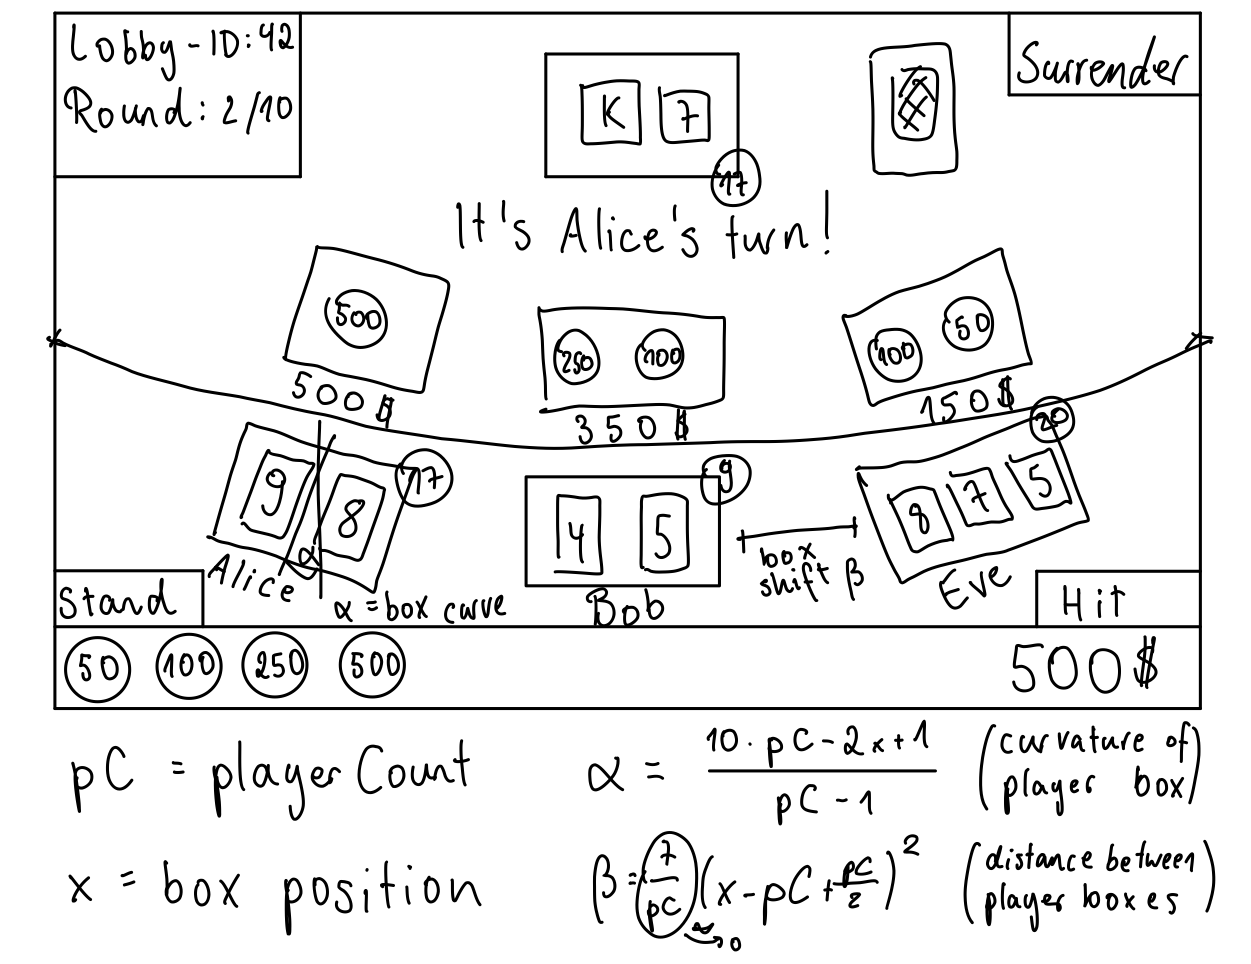 Lobby-ID:42
Round: 2/10
Surrender
K 7
17
It's Alice's turn!
500
500$
250 100
350$
100 50
150$
9 8
17
α
Alice
α = box curve
4 5
9
Bob
box
shift β
8 7 5
20
Eve
Stand
Hit
50 100 250 500
500$
pC = playerCount
α = 10 · pC - 2x + 1 / pC - 1
(curvature of
player box)
x = box position
β = 7/pC (x - pC + pC/2)²
∞ → 0
(distance between
player boxes)